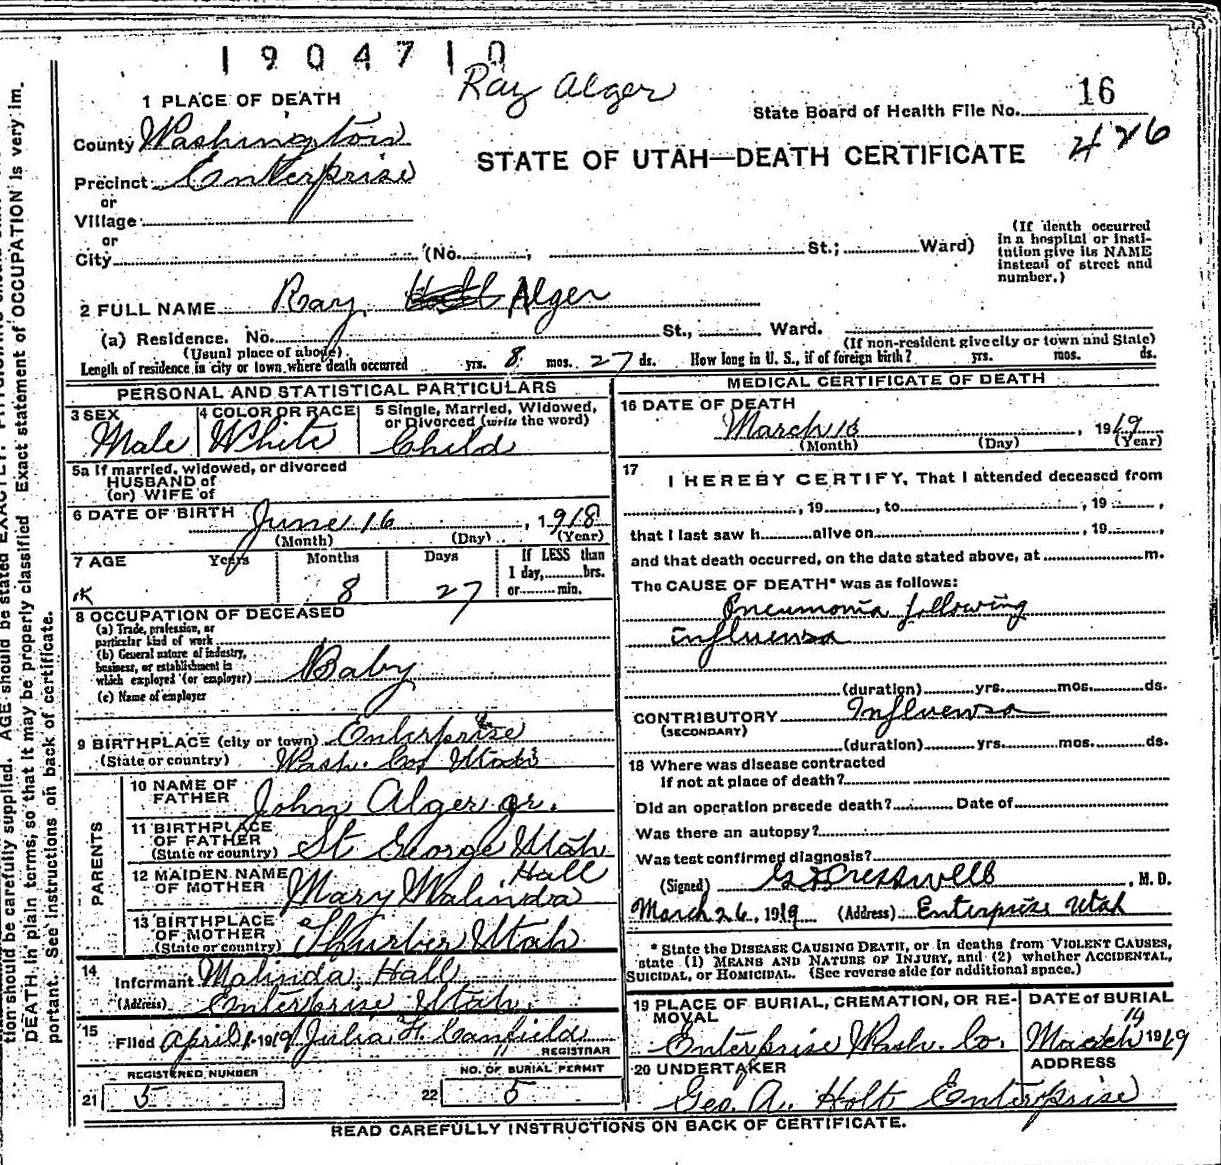 1904710
Ray Alger
1 PLACE OF DEATH
State Board of Health File No. 16
426
County Washington
STATE OF UTAH—DEATH CERTIFICATE
Precinct Enterprise
or
Village
or
City (No. ; St.; Ward)
(If death occurred
in a hospital or insti-
tution give its NAME
instead of street and
number.)
2 FULL NAME Ray Alger
(a) Residence. No. St., Ward.
(Usual place of abode)
(If non-resident give city or town and State)
Length of residence in city or town where death occurred yrs. 8 mos. 27 ds. How long in U. S., if of foreign birth? yrs. mos. ds.
PERSONAL AND STATISTICAL PARTICULARS
3 SEX
Male
4 COLOR OR RACE
White
5 Single, Married, Widowed,
or Divorced (write the word)
Child
5a If married, widowed, or divorced
HUSBAND of
(or) WIFE of
6 DATE OF BIRTH June 16, 1918
(Month) (Day) (Year)
7 AGE Years Months Days If LESS than
1 day, hrs.
or min.
8 27
8 OCCUPATION OF DECEASED
(a) Trade, profession, or
particular kind of work
(b) General nature of industry,
business, or establishment in
which employed (or employer) Baby
(c) Name of employer
9 BIRTHPLACE (city or town) Enterprise
(State or country) Wash. Co. Utah
PARENTS
10 NAME OF
FATHER John Alger Jr.
11 BIRTHPLACE
OF FATHER
(State or country) St George Utah
12 MAIDEN NAME
OF MOTHER Mary Malinda Hall
13 BIRTHPLACE
OF MOTHER
(State or country) Thurber Utah
14
Informant Malinda Hall
(Address) Enterprise Utah.
15
Filed April 1-1919 Julia F. Canfield
REGISTRAR
REGISTERED NUMBER
21 5
NO. OF BURIAL PERMIT
22 5
MEDICAL CERTIFICATE OF DEATH
16 DATE OF DEATH
March 13, 1919
(Month) (Day) (Year)
17 I HEREBY CERTIFY, That I attended deceased from
, 19 , to , 19 ,
that I last saw h alive on , 19 ,
and that death occurred, on the date stated above, at m.
The CAUSE OF DEATH* was as follows:
Pneumonia following
influensa
(duration) yrs. mos. ds.
CONTRIBUTORY Influensa
(SECONDARY)
(duration) yrs. mos. ds.
18 Where was disease contracted
if not at place of death?
Did an operation precede death? Date of
Was there an autopsy?
Was test confirmed diagnosis?
(Signed) Cresswell, M. D.
March 26, 1919 (Address) Enterprise Utah
* State the DISEASE CAUSING DEATH, or in deaths from VIOLENT CAUSES,
state (1) MEANS AND NATURE OF INJURY, and (2) whether ACCIDENTAL,
SUICIDAL, or HOMICIDAL. (See reverse side for additional space.)
19 PLACE OF BURIAL, CREMATION, OR RE-
MOVAL
Enterprise Wash. Co.
DATE of BURIAL
March 14 1919
20 UNDERTAKER
Geo. A. Holt
ADDRESS
Enterprise
READ CAREFULLY INSTRUCTIONS ON BACK OF CERTIFICATE.
tion should be carefully supplied. AGE should be stated EXACTLY.
DEATH in plain terms, so that it may be properly classified. Exact statement of OCCUPATION is very im-
portant. See instructions on back of certificate.